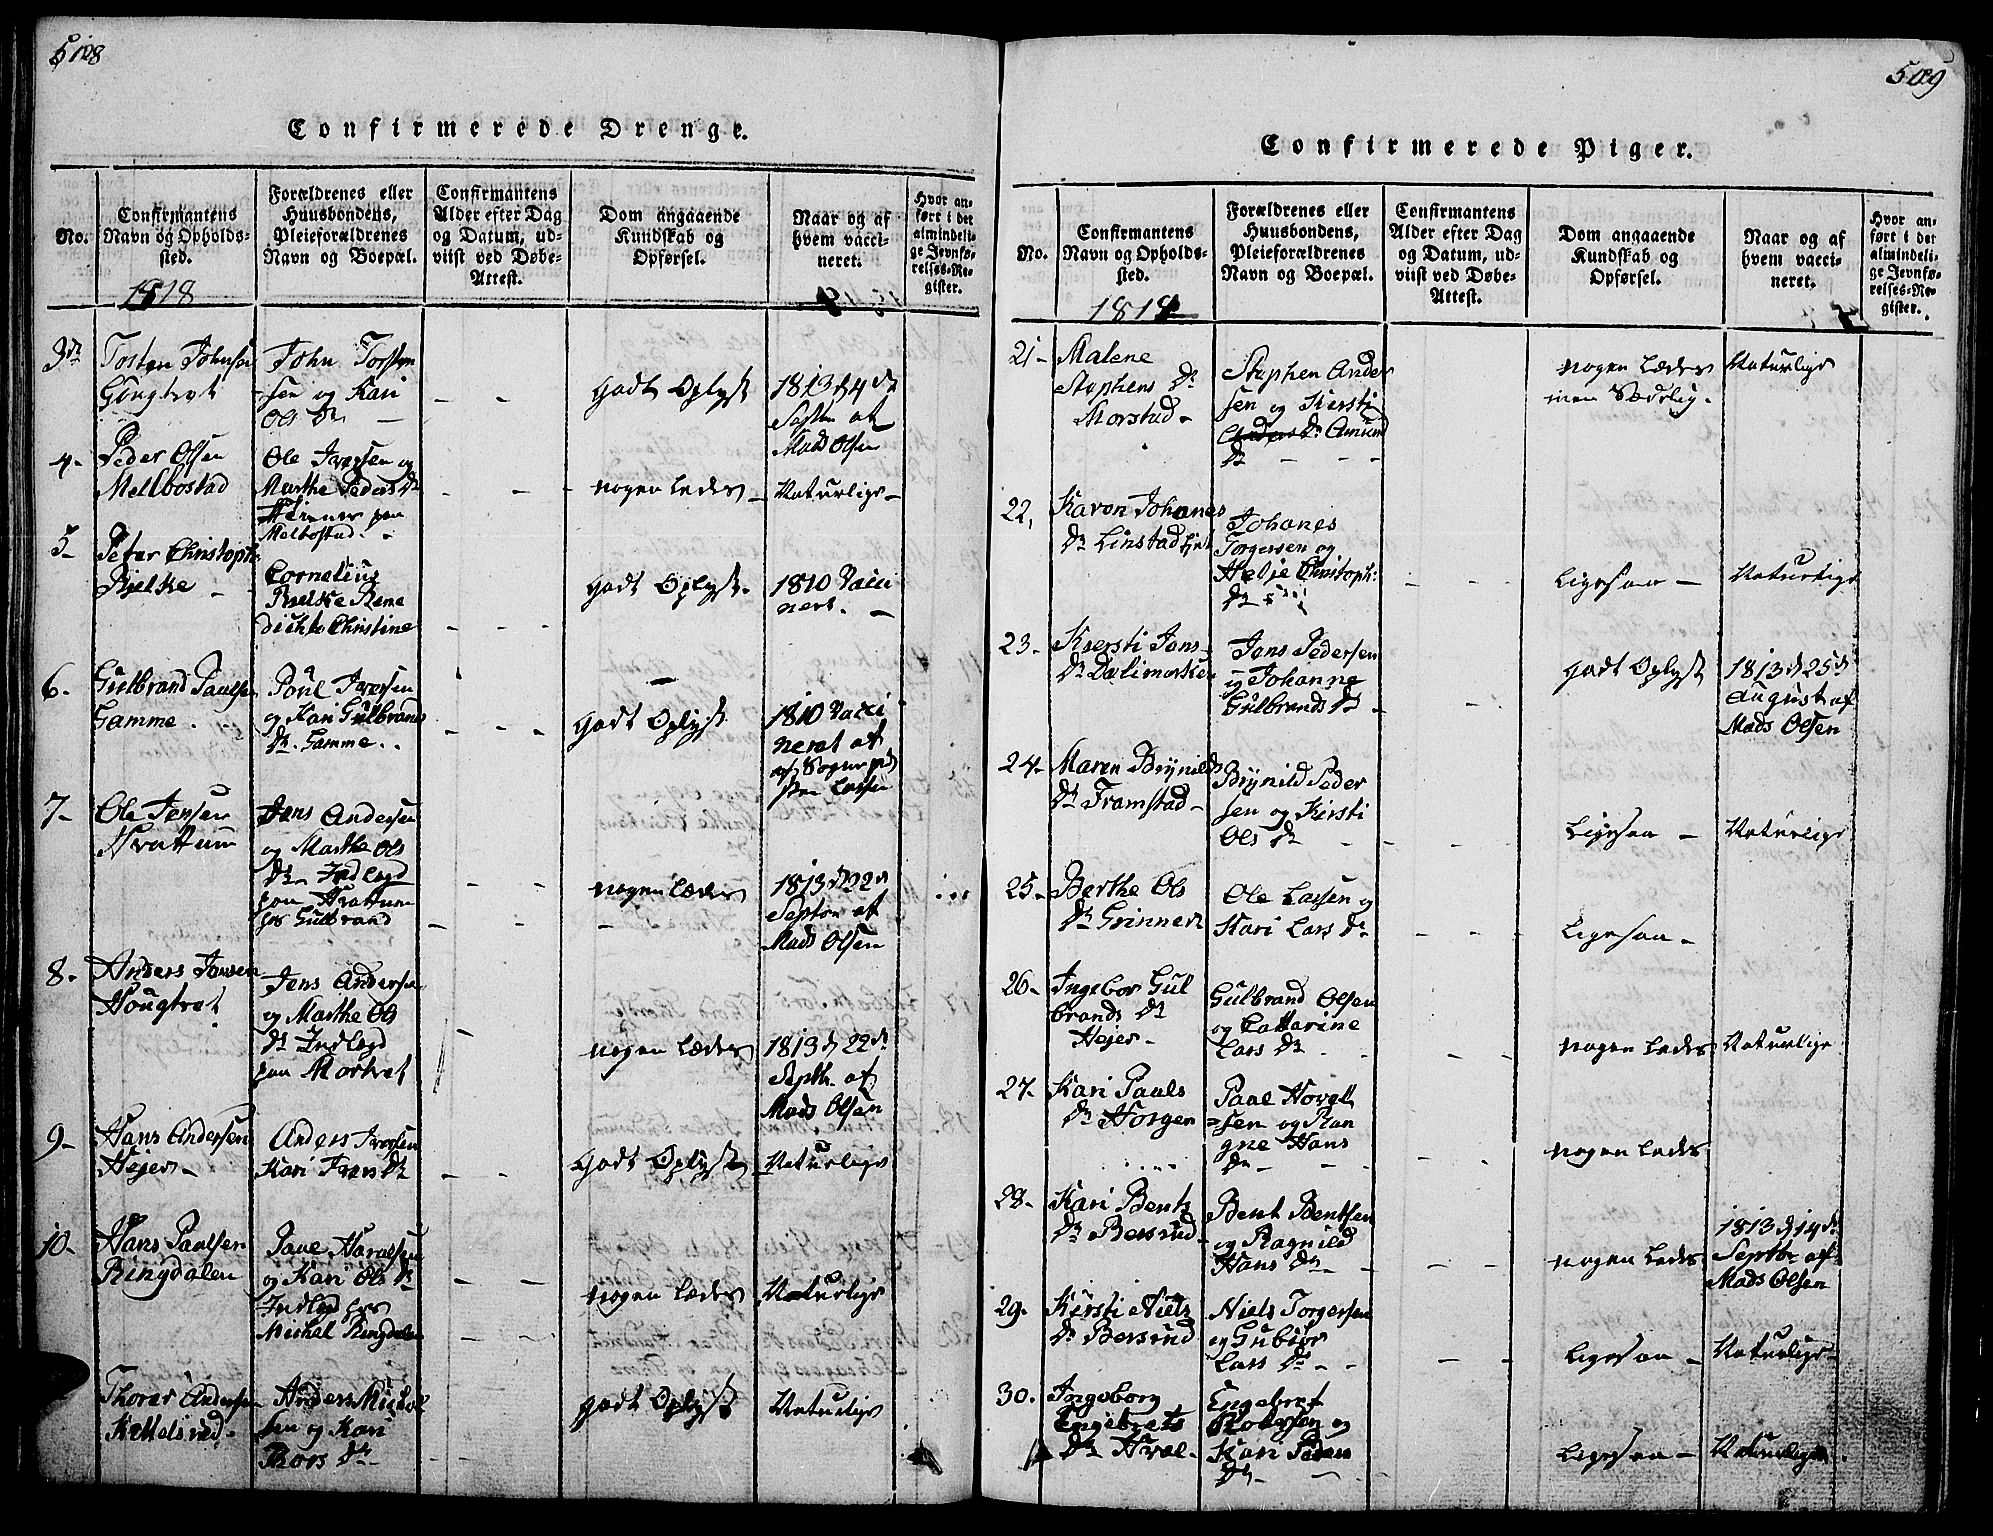 508
Confirmerede Drenge.
No.
Confirmantens
Navn og Opholds-
sted.
1818
Forældrenes eller
Huusbondens,
Pleieforældrenes
Navn og Boepæl.
Confirmantens
Alder efter Dag
og Datum, ud-
viist ved Døbe-
Attest.
Dom angaaende
Kundskab og
Opførsel.
Naar og af
hvem vacci-
neret.
Hvor an-
ført i det
almindeli-
ge Jevnfø-
relses-Re-
gister.
Tosten Johnsen
John Torsten
sen og Kari
Ols Dr
Godt Oplyst
1813 d 4de
Septr af
Mads Olsen
4-
Peder Olsen
Mellbostad
Ole Iversen og
Marthe Peders Dr
paa
Melbostad.
nogenledes
Naturlige
5-
Peter Christoph:
Bielke
Cornelius
Bielke Bene
dichte Christine
Godt Oplyst.
1810 Vacci
nert.
6-
Gulbrand Paulsen
Gamme.
Poul Iversen
og Kari Gulbrands
Dr. Gamme.
Godt Oplyst
1810 Vacci
nerat af
7-
Ole Jensen
Jens Andersen
og Marthe Ols
Dr Indlagd
paa
hos Gulbrand
nogenledes
1813 d 22d
Septbr af
Mads Olsen
8-
Anders Jensen
Jens Andersen
og Marthe Ols
Dr Indlagd
paa
nogenledes
1813 d 22de
Septbr. af
Mads Olsen
9-
Hans Andersen
Hejer
Anders Iversen
Kari Ivers Dr
Godt Oplyst
Naturlige
10-
Hans Paulsen
Ringdalen
og Kari Ols Dr
Indlagd hos
Michel Ringdalen
nogenledes
Naturlige
Thorer Andersen
Anders Michel
sen og Kari
Thors Dr
Godt Oplyst
Naturlige
509
Confirmerede Piger.
No.
Confirmantens
Navn og Opholds-
sted.
1818
Forældrenes eller
Huusbondens,
Pleieforældrenes
Navn og Boepæl.
Confirmantens
Alder efter Dag
og Datum, ud-
viist ved Døbe-
Attest.
Dom angaaende
Kundskab og
Opførsel.
Naar og af
hvem vacci-
neret.
Hvor an-
ført i det
almindeli-
ge Jevnfø-
relses-Re-
gister.
21-
Malene
Stephens Dr
Morstad
Stephen Ander
sen og Kersti
Anders Dr Amund
Dr
nogenledes
men Sædelig.
Naturlige
22,
Karen Johanes
Dr Linstad
Johanes
Torgersen og
Helje Christoph:
Dr
Ligesaa
Naturlige
23.
Kiersti Jens
Dr
Jens Pedersen
og Johanne
Gulbrands Dr
Godt Oplyst
1813 d 25d
August af
Mads Olsen
24-
Maren Brynilds
Dr Framstad
Brynild Peder
sen og Kersti
Ols Dr
Ligesaa
Naturlige
25-
Berthe Ols
Dr Grinner
Ole Larsen og
Kari Lars Dr
Ligesaa
26-
Ingebor Gul
brands Dr
Hejer
Gulbrand Olsen
og Cattarine
Lars Dr
nogenledes
Naturlige
27.
Kari Pauls
Dr Horgen
sen og Ran
gne Hans
Dr
nogenledes
28-
Kari Bents
Dr Bersrud
Bent Bentsen
og Ragnild
Hans Dr
nogenledes
1813 d 14de
Septbr af
Mads Olsen
29.
Kersti Niels
Dr Bersrud
Niels Torgersen
og Gubiør
Lars Dr
Ligesaa
Naturlige
30.
Ingeborg
Engebrets
Dr Hval
Engebret
Pedersen og
Kari Peders
Dr
Ligesaa
Naturlige